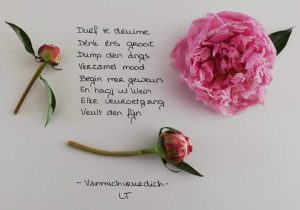 Durf te druime
Denk ens groot
Dump den angs
Verzamel mood
Begin mer geweun
En haoj ut klein
Elke veuroetgang
Veult den fijn
- Vanmichveurdich -
LT